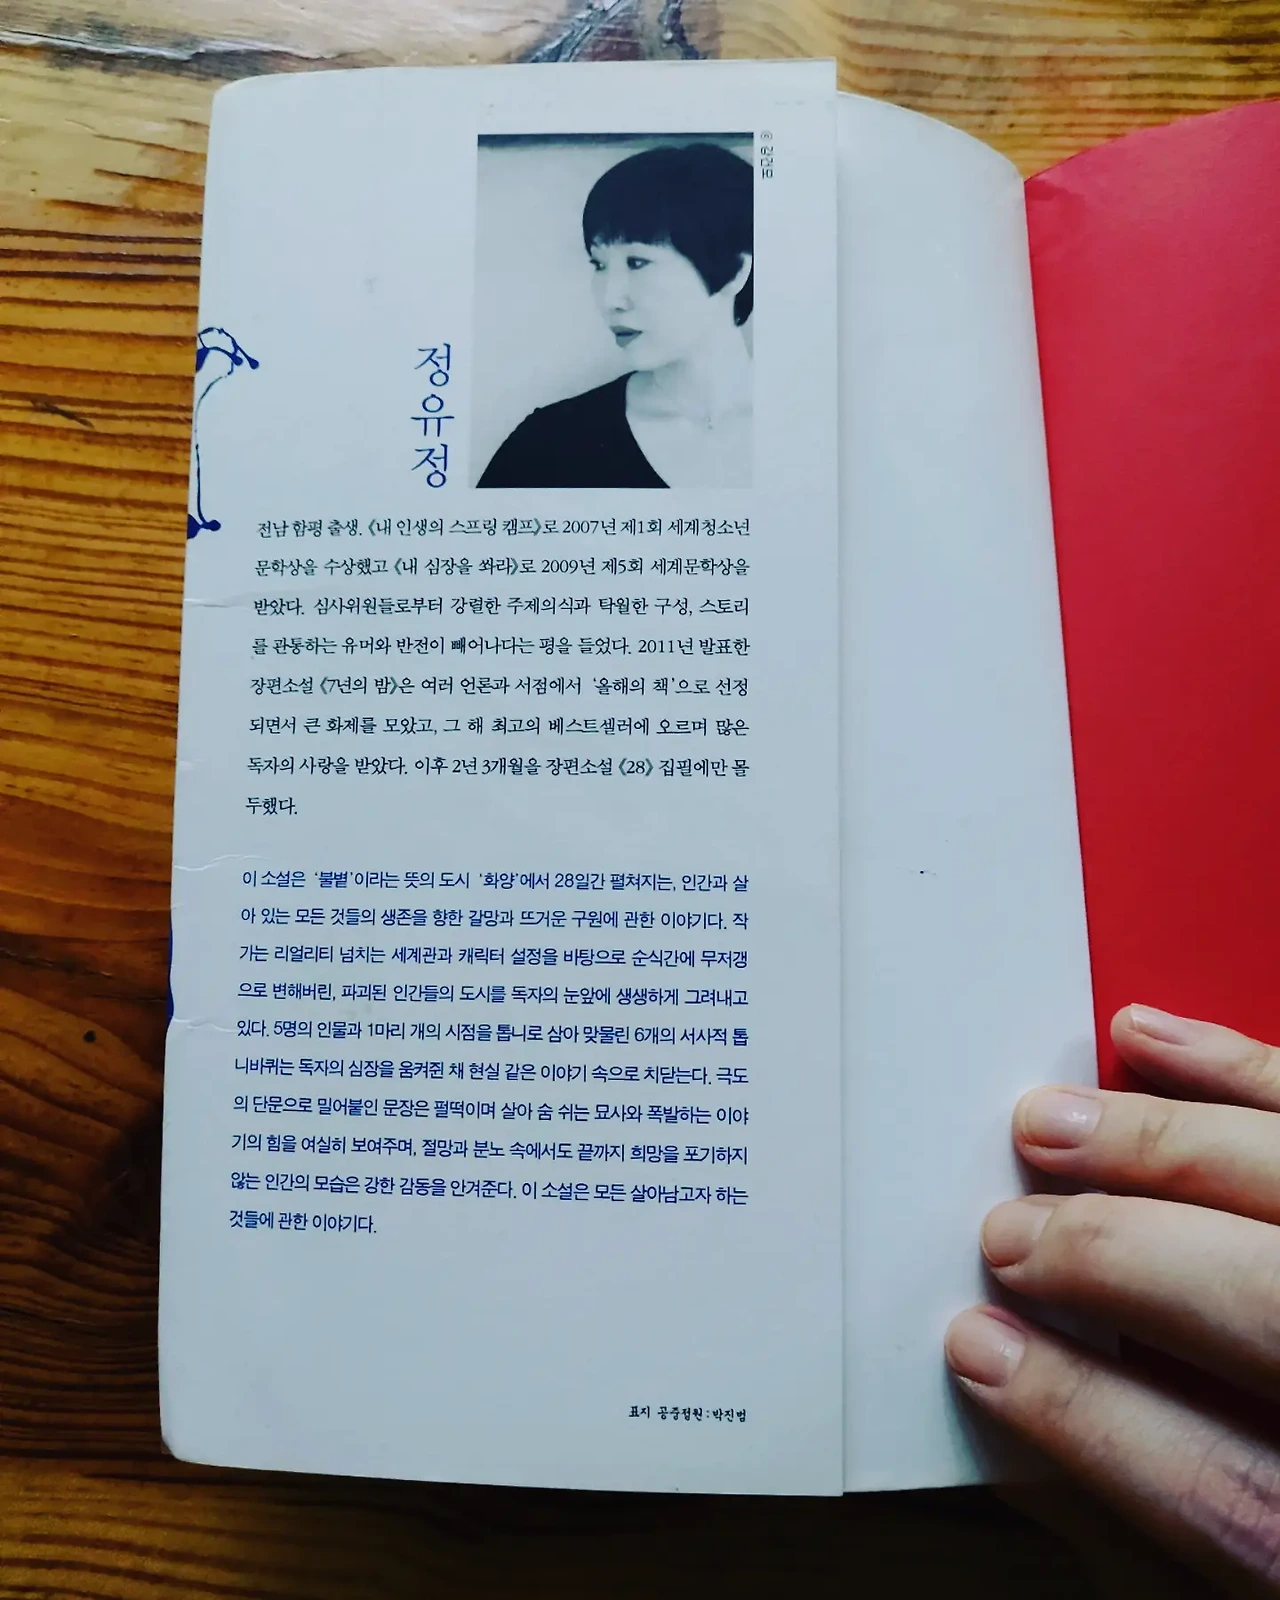 © 강건모
정유정
전남 함평 출생. 《내 인생의 스프링 캠프》로 2007년 제1회 세계청소년
문학상을 수상했고 《내 심장을 쏴라》로 2009년 제5회 세계문학상을
받았다. 심사위원들로부터 강렬한 주제의식과 탁월한 구성, 스토리
를 관통하는 유머와 반전이 빼어나다는 평을 들었다. 2011년 발표한
장편소설 《7년의 밤》은 여러 언론과 서점에서 ‘올해의 책’으로 선정
되면서 큰 화제를 모았고, 그 해 최고의 베스트셀러에 오르며 많은
독자의 사랑을 받았다. 이후 2년 3개월을 장편소설 《28》 집필에만 몰
두했다.
이 소설은 ‘불볕’이라는 뜻의 도시 ‘화양’에서 28일간 펼쳐지는, 인간과 살
아 있는 모든 것들의 생존을 향한 갈망과 뜨거운 구원에 관한 이야기다. 작
가는 리얼리티 넘치는 세계관과 캐릭터 설정을 바탕으로 순식간에 무저갱
으로 변해버린, 파괴된 인간들의 도시를 독자의 눈앞에 생생하게 그려내고
있다. 5명의 인물과 1마리 개의 시점을 톱니로 삼아 맞물린 6개의 서사적 톱
니바퀴는 독자의 심장을 움켜쥔 채 현실 같은 이야기 속으로 치닫는다. 극도
의 단문으로 밀어붙인 문장은 펄떡이며 살아 숨 쉬는 묘사와 폭발하는 이야
기의 힘을 여실히 보여주며, 절망과 분노 속에서도 끝까지 희망을 포기하지
않는 인간의 모습은 강한 감동을 안겨준다. 이 소설은 모든 살아남고자 하는
것들에 관한 이야기다.
표지 공중정원 : 박진범